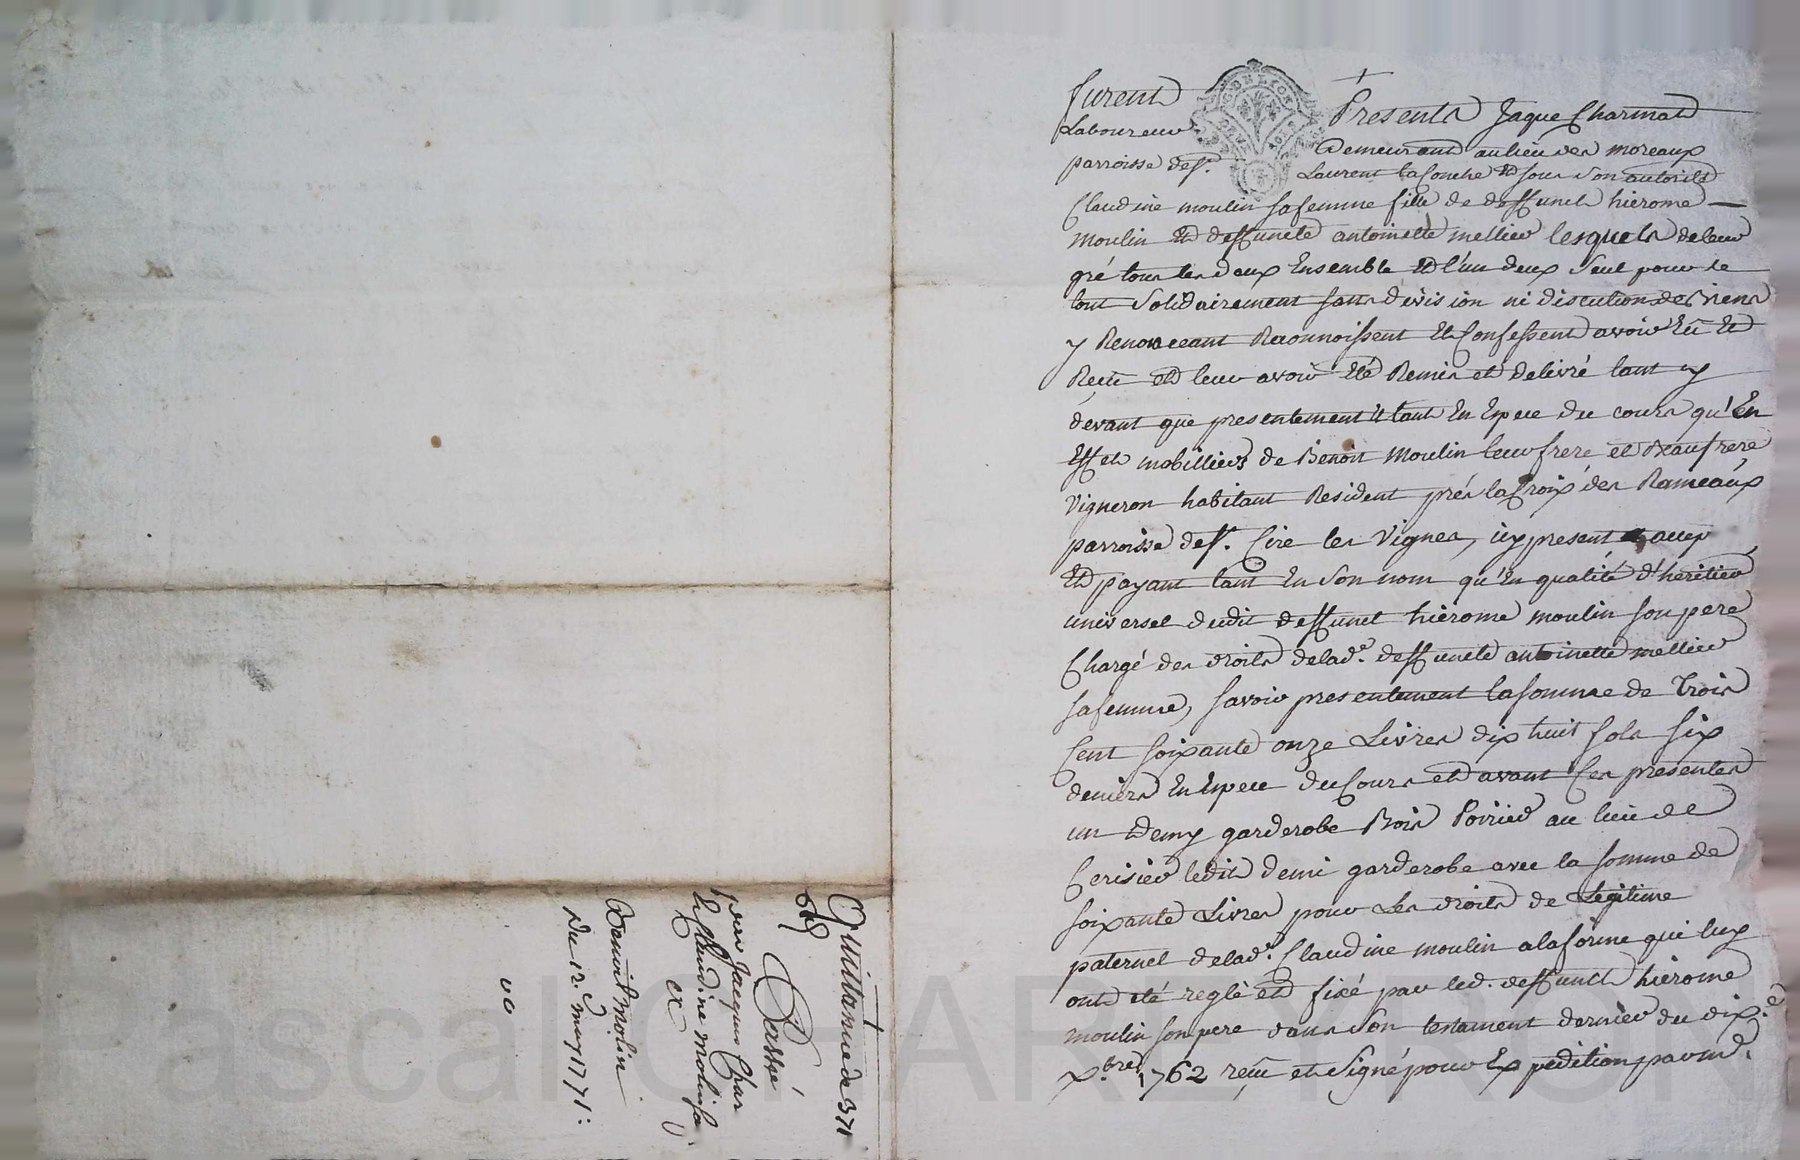 furent Presents Jaque Charmat
Laboureur demeurant au lieu des moreaux
parroisse de St. Laurent la Conche Et sous son autorité
Claudine moulin sa femme fille de deffunct hierome
moulin Et deffuncte antoinette mellier lesquels de leur
gré tous les deux Ensemble Et l'un deux Seul pour le
tout Solidairement sans division ni discution de Biens
y Renonceant Reconnoissent Et Confessent avoir Eû Et
Reçû et leur avoir Eté Remis et delivré tant cy
devant que presentement Et tant En Epece du cours qu'En
Effets mobilliers de Benoit Moulin leur frere et Beaufrere
Vigneron habitant Resident prés la Croix des Rameaux
parroisse de St. Cire les Vignes, icy present acceptt
Et payant tant En Son nom qu'En qualité d'heritier
universel dudit deffunct hierome moulin son pere
Chargé des droits de lade. deffuncte antoinette mellier
sa femme, savoir presentement la somme de Trois
Cent soixante onze Livres dix huit sols six
deniers En Epece du Cours et avant Ces presentes
un demy garderobe Bois Poirier au lieu de
Cerisier ledit demi garderobe avec la somme de
soixante Livres pour les droits de Legitime
paternel de lade. Claudine moulin a la forme qui luy
ont été reglé et fixé par led. deffunct hierome
moulin son pere dans son testament dernier du dix e
xbre 1762 reçû et Signé pour Expedition par me.
Quittance de 371
Passé
par Jacques Char
& Claudine molin sa
a
Benoit molin
du 12. may 1771:
Pascal CHARETRON